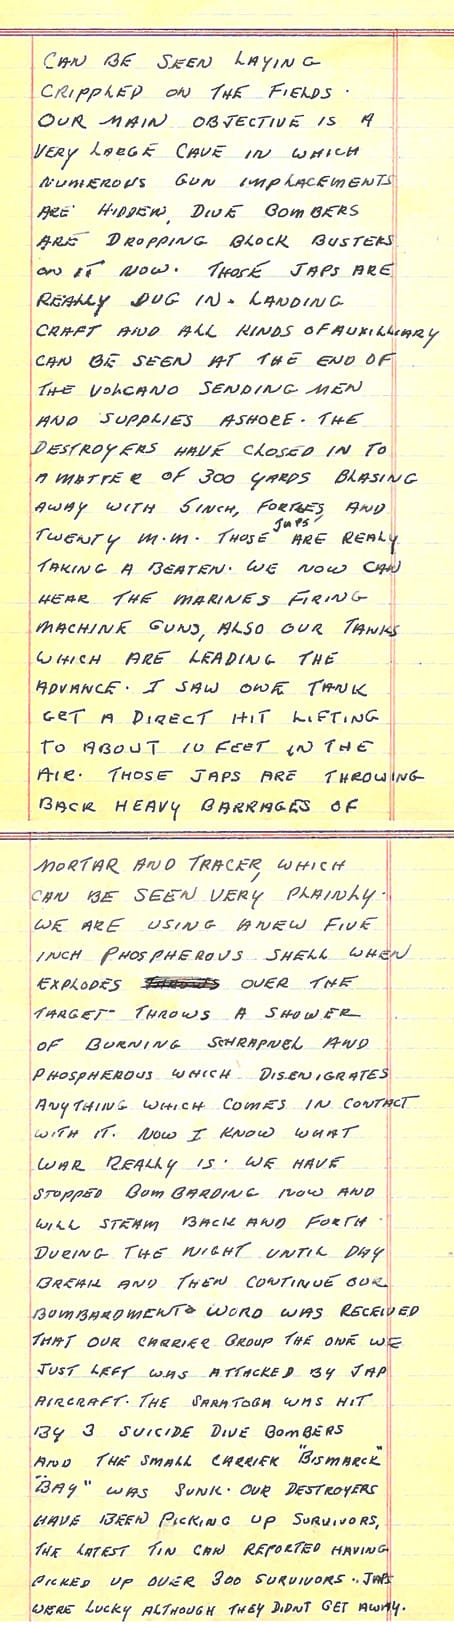 CAN BE SEEN LAYING
CRIPPLED ON THE FIELDS.
OUR MAIN OBJECTIVE IS A
VERY LARGE CAVE IN WHICH
NUMEROUS GUN IMPLACEMENTS
ARE HIDDEN, DIVE BOMBERS
ARE DROPPING BLOCK BUSTERS
ON IT NOW. THOSE JAPS ARE
REALLY DUG IN. LANDING
CRAFT AND ALL KINDS OF AUXILLIARY
CAN BE SEEN AT THE END OF
THE VOLCANO SENDING MEN
AND SUPPLIES ASHORE. THE
DESTROYERS HAVE CLOSED IN TO
A MATTER OF 300 YARDS BLASING
AWAY WITH 5 INCH, FORTIES, AND
TWENTY M.M. THOSE JAPS ARE REALY
TAKING A BEATEN. WE NOW CAN
HEAR THE MARINES FIRING
MACHINE GUNS, ALSO OUR TANKS
WHICH ARE LEADING THE
ADVANCE. I SAW ONE TANK
GET A DIRECT HIT LIFTING
TO ABOUT 10 FEET IN THE
AIR. THOSE JAPS ARE THROWING
BACK HEAVY BARRAGES OF
MORTAR AND TRACER, WHICH
CAN BE SEEN VERY PLAINLY.
WE ARE USING A NEW FIVE
INCH PHOSPHEROUS SHELL WHEN
EXPLODES OVER THE
TARGET THROWS A SHOWER
OF BURNING SCHRAPNEL AND
PHOSPHEROUS WHICH DISENIGRATES
ANYTHING WHICH COMES IN CONTACT
WITH IT. NOW I KNOW WHAT
WAR REALLY IS. WE HAVE
STOPPED BOMBARDING NOW AND
WILL STEAM BACK AND FORTH
DURING THE NIGHT UNTIL DAY
BREAK AND THEN CONTINUE OUR
BOMBARDMENT. WORD WAS RECEIVED
THAT OUR CARRIER GROUP THE ONE WE
JUST LEFT WAS ATTACKED BY JAP
AIRCRAFT. THE SARATOGA WAS HIT
BY 3 SUICIDE DIVE BOMBERS
AND THE SMALL CARRIER "BISMARCK"
"BAY" WAS SUNK. OUR DESTROYERS
HAVE BEEN PICKING UP SURVIVORS,
THE LATEST TIN CAN REPORTED HAVING
PICKED UP OVER 300 SURVIVORS.. JAPS
WERE LUCKY ALTHOUGH THEY DIDNT GET AWAY.